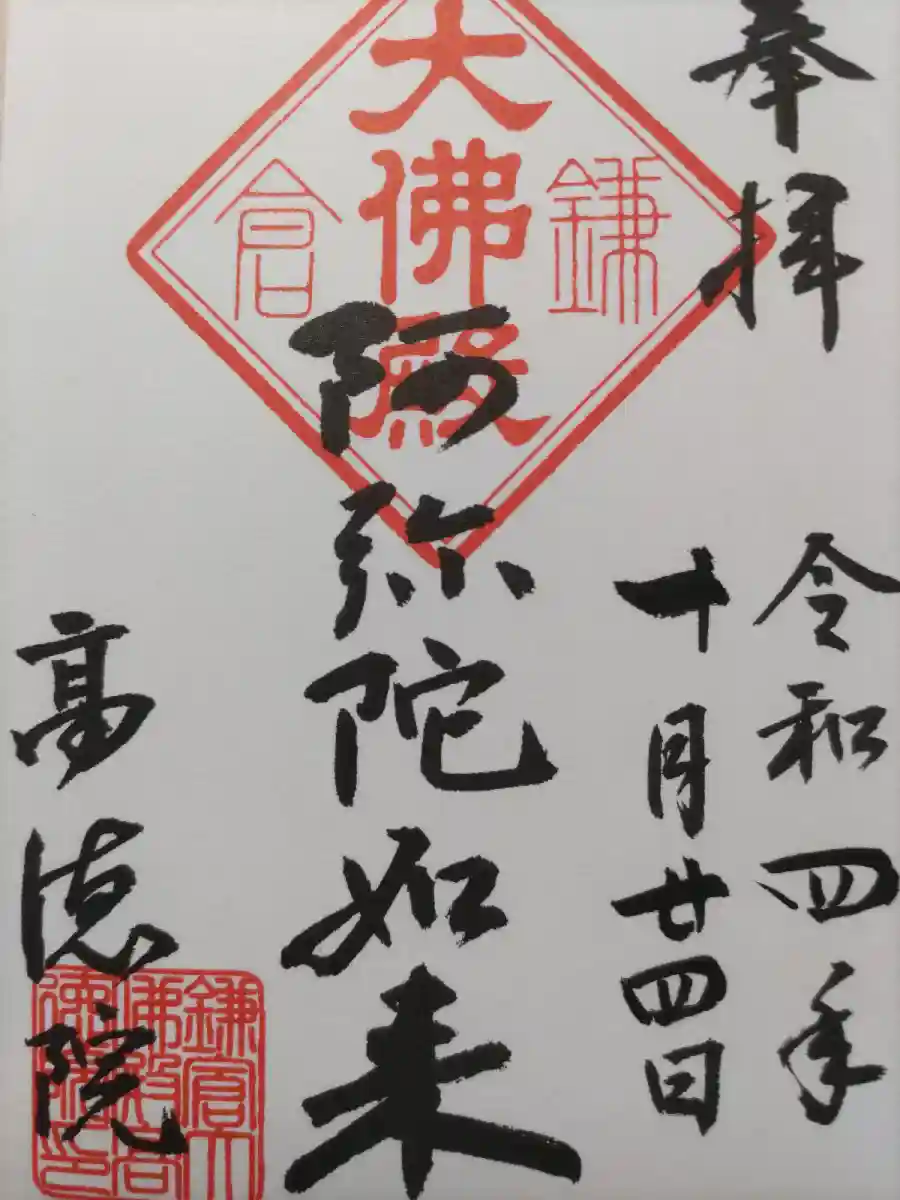 奉拝
令和四年
十月廿四日
鎌倉
大佛殿
阿弥陀如来
高徳院
鎌倉大
佛殿高
徳院印